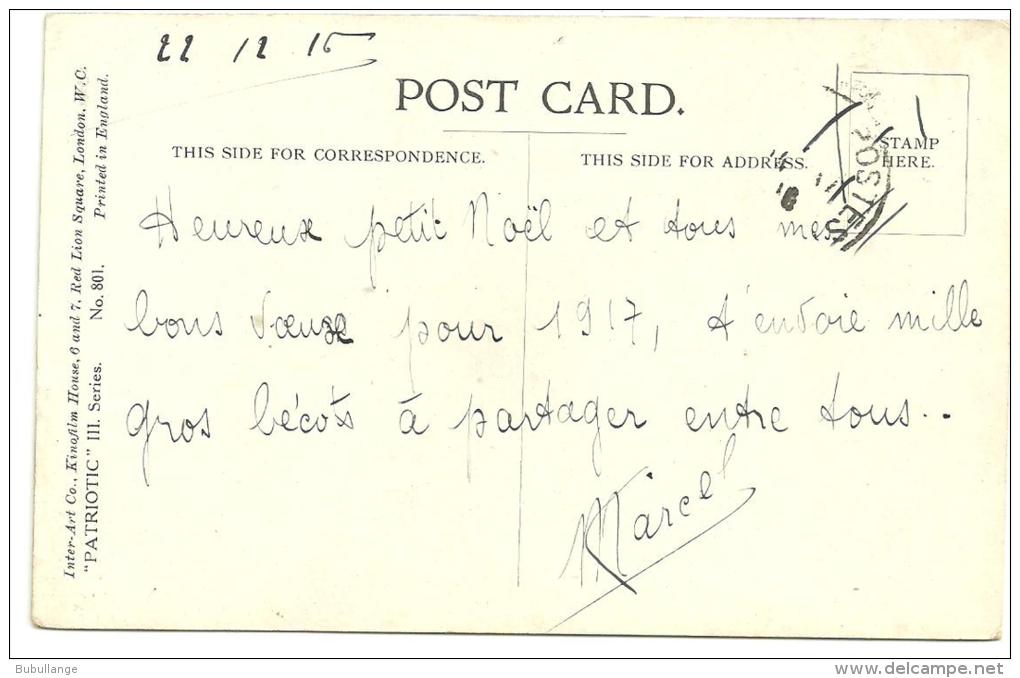 22 12 16
POST CARD.
THIS SIDE FOR CORRESPONDENCE.
THIS SIDE FOR ADDRESS.
STAMP
HERE.
POSTES
Heureux petit Noël et tous mes
bons voeux pour 1917, t'envoie mille
gros bécots à partager entre tous..
Marcel
Inter-Art Co., Kinofilm House, 6 and 7, Red Lion Square, London, W.C.
"PATRIOTIC" III. Series. No. 801. Printed in England.
Bubullange
www.delcampe.net